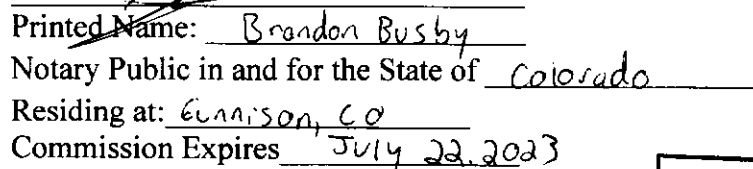 Printed Name: Brandon Busby
Notary Public in and for the State of Colorado
Residing at: Gunnison, CO
Commission Expires July 22, 2023